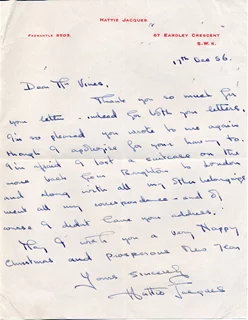 HATTIE JACQUES
FREMANTLE 6903.
67 EARDLEY CRESCENT
S.W.5.
17th Dec 56.
Dear Mr Vines,
Thank you so much for
your letter - indeed for both your letters,
I'm so pleased you wrote to me again
though I apologise for your having to.
I'm afraid I lost a suitcase on the
move back from Brighton to London
and along with all my other belongings
went all my correspondence - and of
course I didn't have your address.
May I wish you a very Happy
Christmas and prosperous New Year
Yours Sincerely
Hattie Jacques